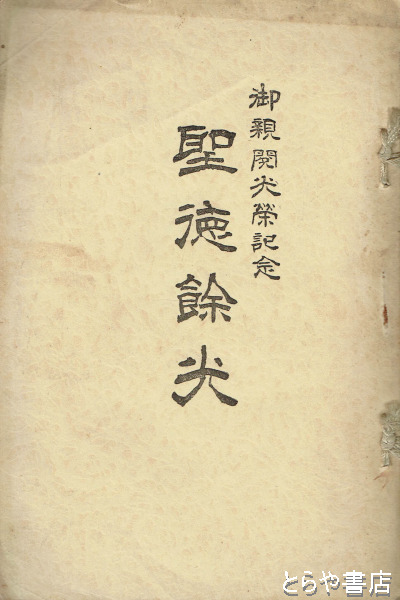 御親閲光榮記念
聖徳餘光
とらや書店